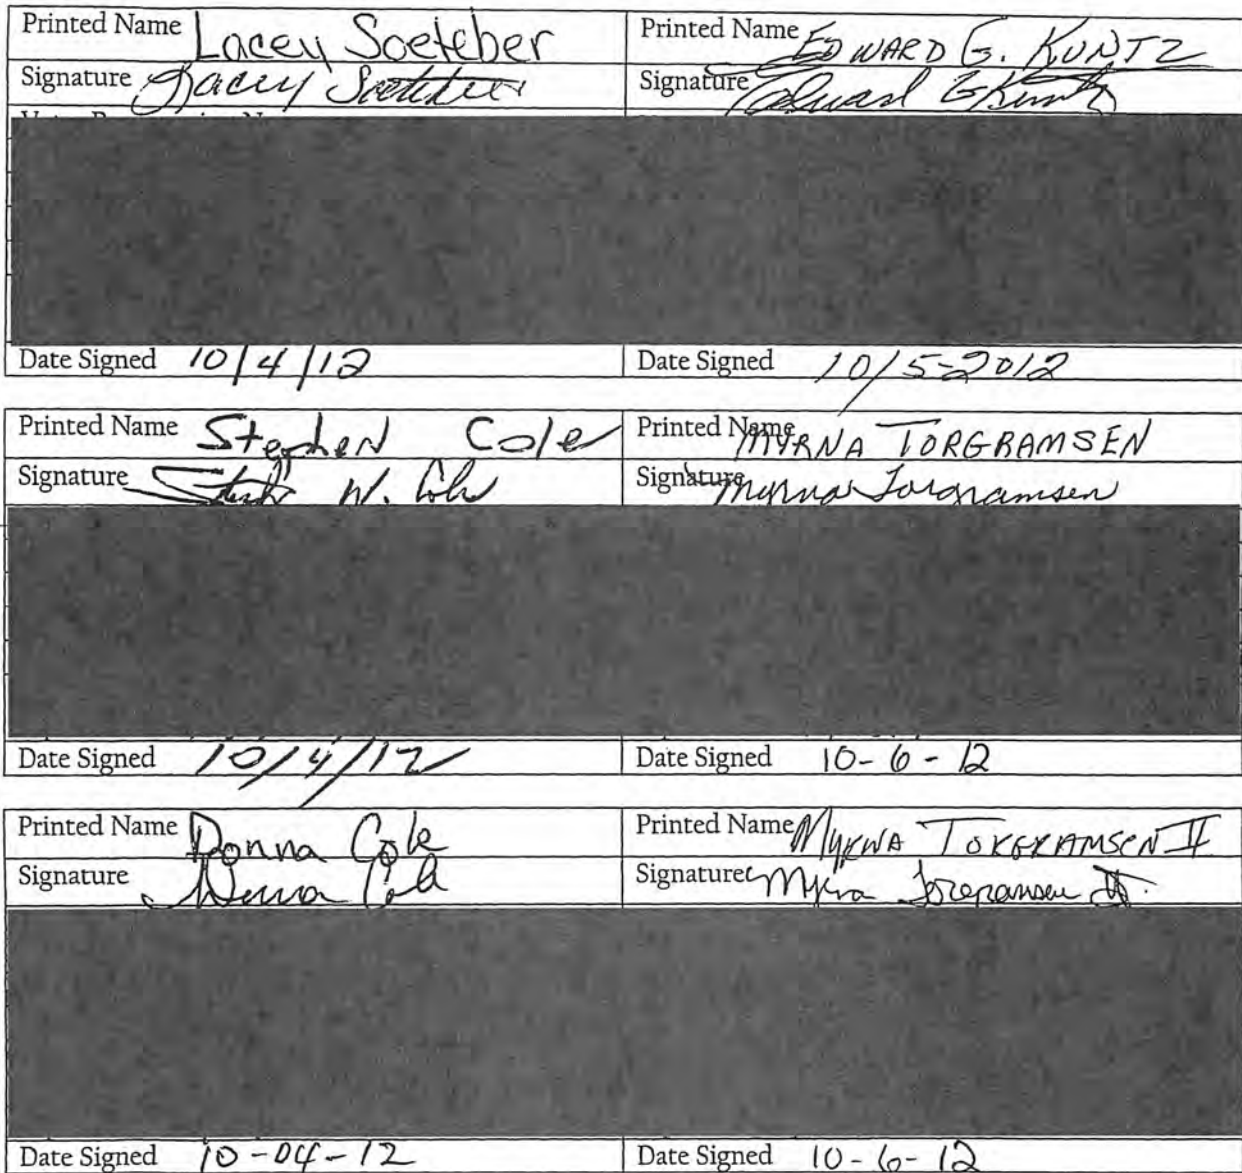 Printed Name Lacey Soeteber
Signature Lacey Soeteber
Date Signed 10/4/12
Printed Name EDWARD G. KUNTZ
Signature Edward G Kuntz
Date Signed 10/5-2012
Printed Name Stephen Cole
Signature W. Cole
Date Signed 10/4/12
Printed Name MYRNA TORGRAMSEN
Signature Myrna Torgramsen
Date Signed 10-6-12
Printed Name Donna Cole
Signature Donna Cole
Date Signed 10-04-12
Printed Name MYRNA TORGRAMSEN II
Signature Myrna Torgramsen II.
Date Signed 10-6-12